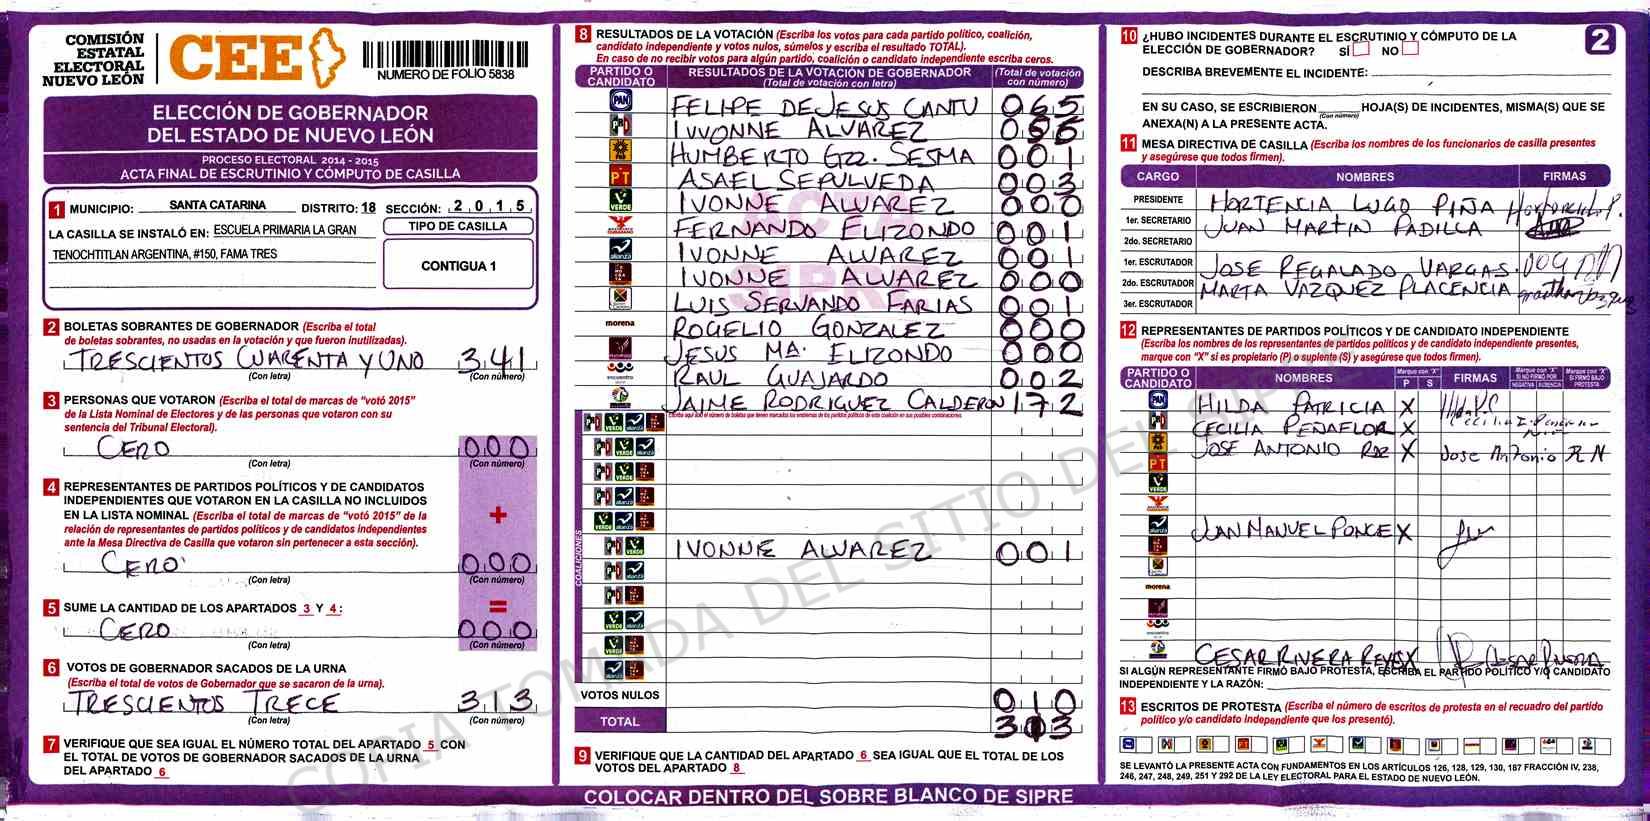 COMISIÓN
ESTATAL
ELECTORAL
NUEVO LEÓN
CEE
NUMERO DE FOLIO 5838
ELECCIÓN DE GOBERNADOR
DEL ESTADO DE NUEVO LEÓN
PROCESO ELECTORAL 2014 - 2015
ACTA FINAL DE ESCRUTINIO Y CÓMPUTO DE CASILLA
1 MUNICIPIO: SANTA CATARINA DISTRITO: 18 SECCIÓN: 2 0 1 5
LA CASILLA SE INSTALÓ EN: ESCUELA PRIMARIA LA GRAN
TENOCHTITLAN ARGENTINA, #150, FAMA TRES
TIPO DE CASILLA
CONTIGUA 1
2 BOLETAS SOBRANTES DE GOBERNADOR (Escriba el total
de boletas sobrantes, no usadas en la votación y que fueron inutilizadas).
TRESCIENTOS CUARENTA Y UNO 341
(Con letra) (Con número)
3 PERSONAS QUE VOTARON (Escriba el total de marcas de “votó 2015”
de la Lista Nominal de Electores y de las personas que votaron con su
sentencia del Tribunal Electoral).
CERO 000
(Con letra) (Con número)
4 REPRESENTANTES DE PARTIDOS POLÍTICOS Y DE CANDIDATOS
INDEPENDIENTES QUE VOTARON EN LA CASILLA NO INCLUIDOS
EN LA LISTA NOMINAL (Escriba el total de marcas de “votó 2015” de la
relación de representantes de partidos políticos y de candidatos independientes
ante la Mesa Directiva de Casilla que votaron sin pertenecer a esta sección).
+
CERO 000
(Con letra) (Con número)
=
5 SUME LA CANTIDAD DE LOS APARTADOS 3 Y 4:
CERO 000
(Con letra) (Con número)
6 VOTOS DE GOBERNADOR SACADOS DE LA URNA
(Escriba el total de votos de Gobernador que se sacaron de la urna).
TRESCIENTOS TRECE 313
(Con letra) (Con número)
7 VERIFIQUE QUE SEA IGUAL EL NÚMERO TOTAL DEL APARTADO 5 CON
EL TOTAL DE VOTOS DE GOBERNADOR SACADOS DE LA URNA
DEL APARTADO 6
8 RESULTADOS DE LA VOTACIÓN (Escriba los votos para cada partido político, coalición,
candidato independiente y votos nulos, súmelos y escriba el resultado TOTAL).
En caso de no recibir votos para algún partido, coalición o candidato independiente escriba ceros.
PARTIDO O CANDIDATO
RESULTADOS DE LA VOTACIÓN DE GOBERNADOR
(Total de votación con letra)
(Total de votación con número)
PAN FELIPE DE JESUS CANTU 065
PRI IVVONNE ALVAREZ
PRD HUMBERTO GZZ. SESMA 001
PT ASAEL SEPULVEDA 003
VERDE IVONNE ALVAREZ 000
FERNANDO ELIZONDO 001
alianza IVONNE ALVAREZ 001
IVONNE ALVAREZ 000
LUIS SERVANDO FARIAS 001
morena ROGELIO GONZALEZ 000
JESUS Mª. ELIZONDO 000
encuentro RAUL GUAJARDO 002
JAIME RODRIGUEZ CALDERON 172
COALICIONES
IVONNE ALVAREZ 001
VOTOS NULOS 010
TOTAL 313
9 VERIFIQUE QUE LA CANTIDAD DEL APARTADO 6 SEA IGUAL QUE EL TOTAL DE LOS
VOTOS DEL APARTADO 8
COLOCAR DENTRO DEL SOBRE BLANCO DE SIPRE
10 ¿HUBO INCIDENTES DURANTE EL ESCRUTINIO Y CÓMPUTO DE LA
ELECCIÓN DE GOBERNADOR? SÍ NO
2
DESCRIBA BREVEMENTE EL INCIDENTE:
EN SU CASO, SE ESCRIBIERON HOJA(S) DE INCIDENTES, MISMA(S) QUE SE
(Con número)
ANEXA(N) A LA PRESENTE ACTA.
11 MESA DIRECTIVA DE CASILLA (Escriba los nombres de los funcionarios de casilla presentes
y asegúrese que todos firmen).
CARGO NOMBRES FIRMAS
PRESIDENTE HORTENCIA LUGO PIÑA
1er. SECRETARIO JUAN MARTIN PADILLA
2do. SECRETARIO
1er. ESCRUTADOR JOSE REGALADO VARGAS
2do. ESCRUTADOR MARTA VAZQUEZ PLACENCIA
3er. ESCRUTADOR
12 REPRESENTANTES DE PARTIDOS POLÍTICOS Y DE CANDIDATO INDEPENDIENTE
(Escriba los nombres de los representantes de partidos políticos y de candidato independiente presentes,
marque con “X” si es propietario (P) o suplente (S) y asegúrese que todos firmen).
PARTIDO O CANDIDATO NOMBRES Marque con “X” P S FIRMAS Marque con “X” SI NO FIRMÓ POR NEGATIVA AUSENCIA Marque con “X” SI FIRMÓ BAJO PROTESTA
HILDA PATRICIA X
CECILIA PEÑAFLOR X
JOSE ANTONIO RDZ X Jose Antonio R N
JUAN MANUEL PONCE X
morena
CESAR RIVERA REYES X
SI ALGÚN REPRESENTANTE FIRMÓ BAJO PROTESTA, ESCRIBA EL PARTIDO POLÍTICO Y/O CANDIDATO
INDEPENDIENTE Y LA RAZÓN:
13 ESCRITOS DE PROTESTA (Escriba el número de escritos de protesta en el recuadro del partido
político y/o candidato independiente que los presentó).
SE LEVANTÓ LA PRESENTE ACTA CON FUNDAMENTOS EN LOS ARTÍCULOS 126, 128, 129, 130, 187 FRACCIÓN IV, 238,
246, 247, 248, 249, 251 Y 292 DE LA LEY ELECTORAL PARA EL ESTADO DE NUEVO LEÓN.
ACTA
SIPRE
COPIA TOMADA DEL SITIO DEL SIPRE